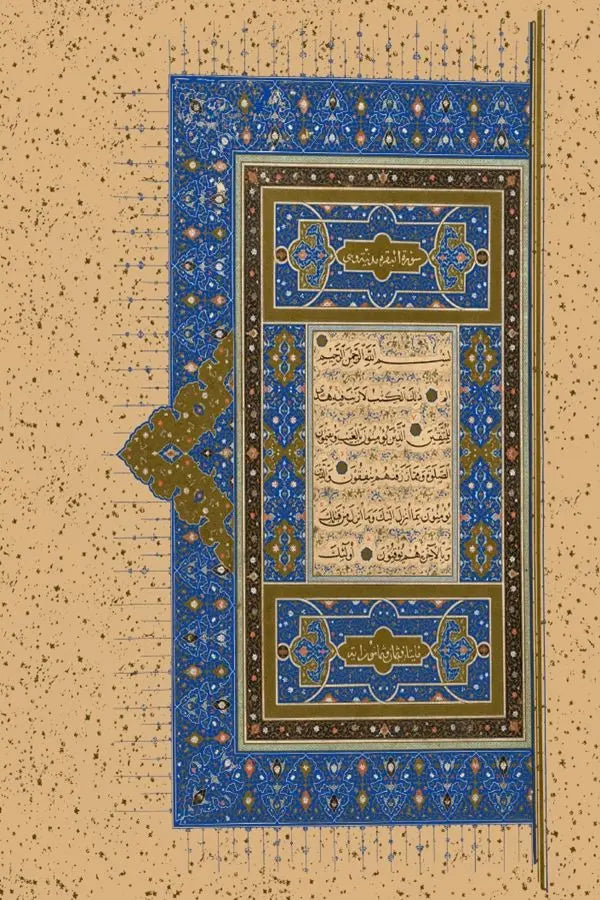 سورة البقرة مدنية وهي
بسم الله الرحمن الرحيم
الم ذلك الكتب لا ريب فيه هدى
للمتقين الذين يؤمنون بالغيب ويقيمون
الصلوة ومما رزقنهم ينفقون والذين
يؤمنون بما انزل اليك وما انزل من قبلك
وبالاخرة هم يوقنون اولئك
مايتا وثمان وثمانون اية